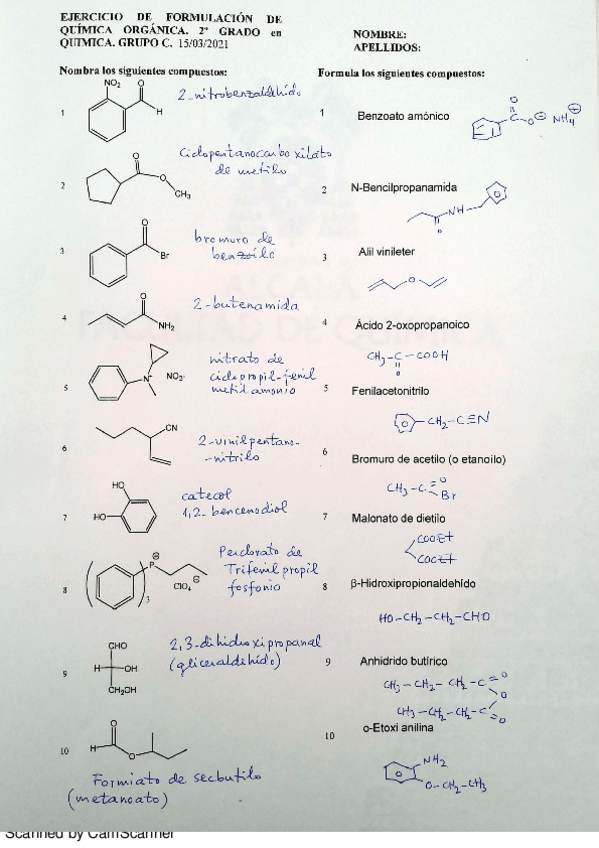 EJERCICIO DE FORMULACIÓN DE
QUÍMICA ORGÁNICA. 2º GRADO en
QUIMICA. GRUPO C. 15/03/2021
NOMBRE:
APELLIDOS:
Nombra los siguientes compuestos:
1
NO₂
O
H
2-nitrobenzaldehído
2
O
O
CH₃
Ciclopentanocarboxilato
de metilo
3
O
Br
bromuro de
benzoilo
4
O
NH₂
2-butenamida
5
N⁺
NO₃⁻
nitrato de
ciclopropil-fenil
metil amonio
6
CN
2-vinilpentano-
-nitrilo
7
HO
HO
catecol
1,2-bencenodiol
8
P
⊖
3
ClO₄ ⊖
Perclorato de
Trifenil propil
fosfonio
9
CHO
H
OH
CH₂OH
2,3-dihidroxipropanal
(gliceraldehído)
10
O
H
O
Formiato de secbutilo
(metanoato)
Formula los siguientes compuestos:
1
Benzoato amónico
O
C
O ⊖
NH₄ ⊕
2
N-Bencilpropanamida
NH
O
3
Alil vinileter
O
4
Ácido 2-oxopropanoico
CH₃-C-COOH
O
5
Fenilacetonitrilo
CH₂-C≡N
6
Bromuro de acetilo (o etanoilo)
CH₃-C
O
Br
7
Malonato de dietilo
COOEt
COOEt
8
β-Hidroxipropionaldehído
HO-CH₂-CH₂-CHO
9
Anhidrido butírico
CH₃-CH₂-CH₂-C=O
O
CH₃-CH₂-CH₂-C=O
10
o-Etoxi anilina
NH₂
O-CH₂-CH₃
Scanned by CamScanner